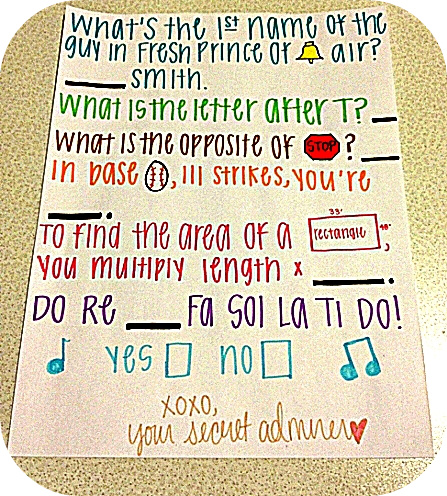 What's the 1st name of the
guy in Fresh Prince of air?
____ Smith.
What is the letter after T? __
What is the opposite of STOP ? __
In base , III strikes, you're
____.
To find the area of a rectangle 33' 48' ,
you multiply length x ____.
DO RE ____ FA SOl LA TI DO!
yes no
xoxo,
your secret admirer